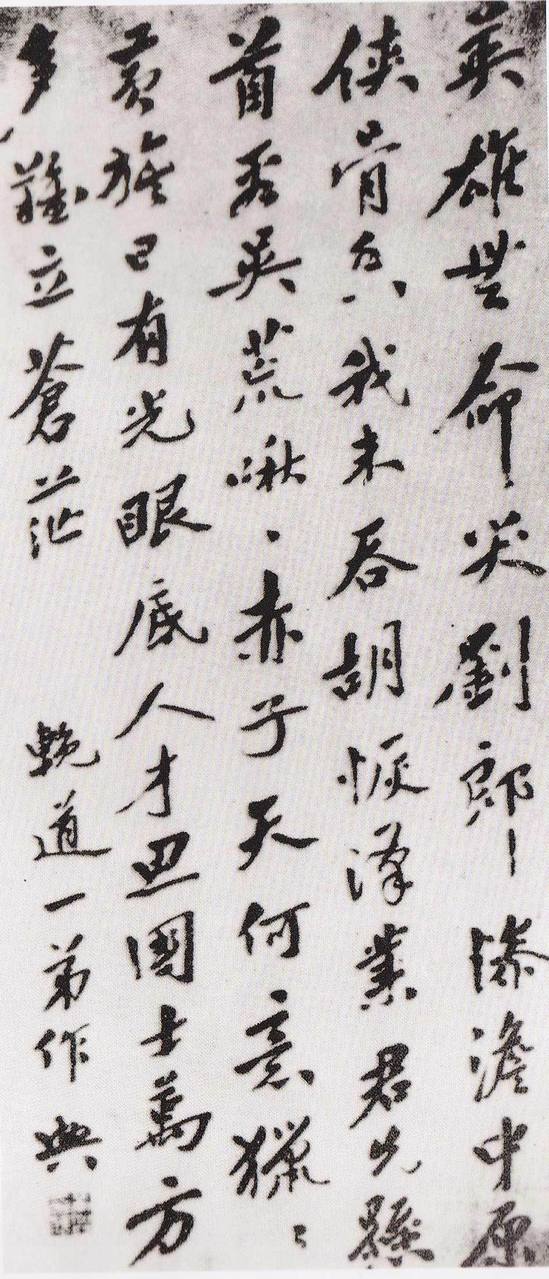 英雄無命哭劉郎慘澹中原
俠骨香我未吞胡恢漢業君先縣
首看吳荒啾〻赤子天何意獵〻
黃旗日有光眼底人才思國士萬方
多難立蒼茫
輓道一弟作 興